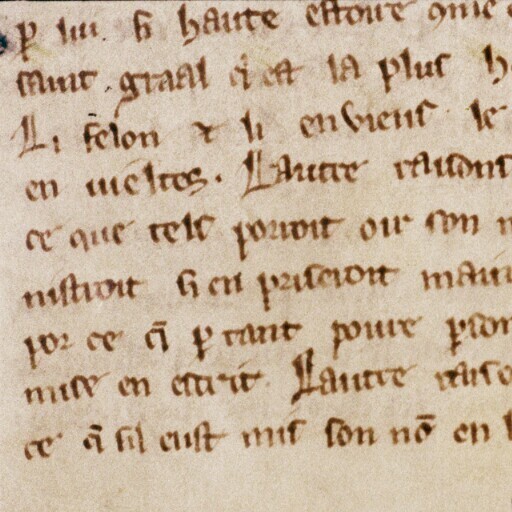 ꝑ lui. si haute estoire ꝯme
saint graal q̃ est la plus h
Li felon ⁊ li envieus le
en vieltes. Lautre raisons
ce que tels porroit oir son n
nistroit si en priseroit main
por ce q̃ ꝑ tant poure ꝑson
mise en escrit. Lautre raiso
ce q̃ sil eust mis son nõ en l